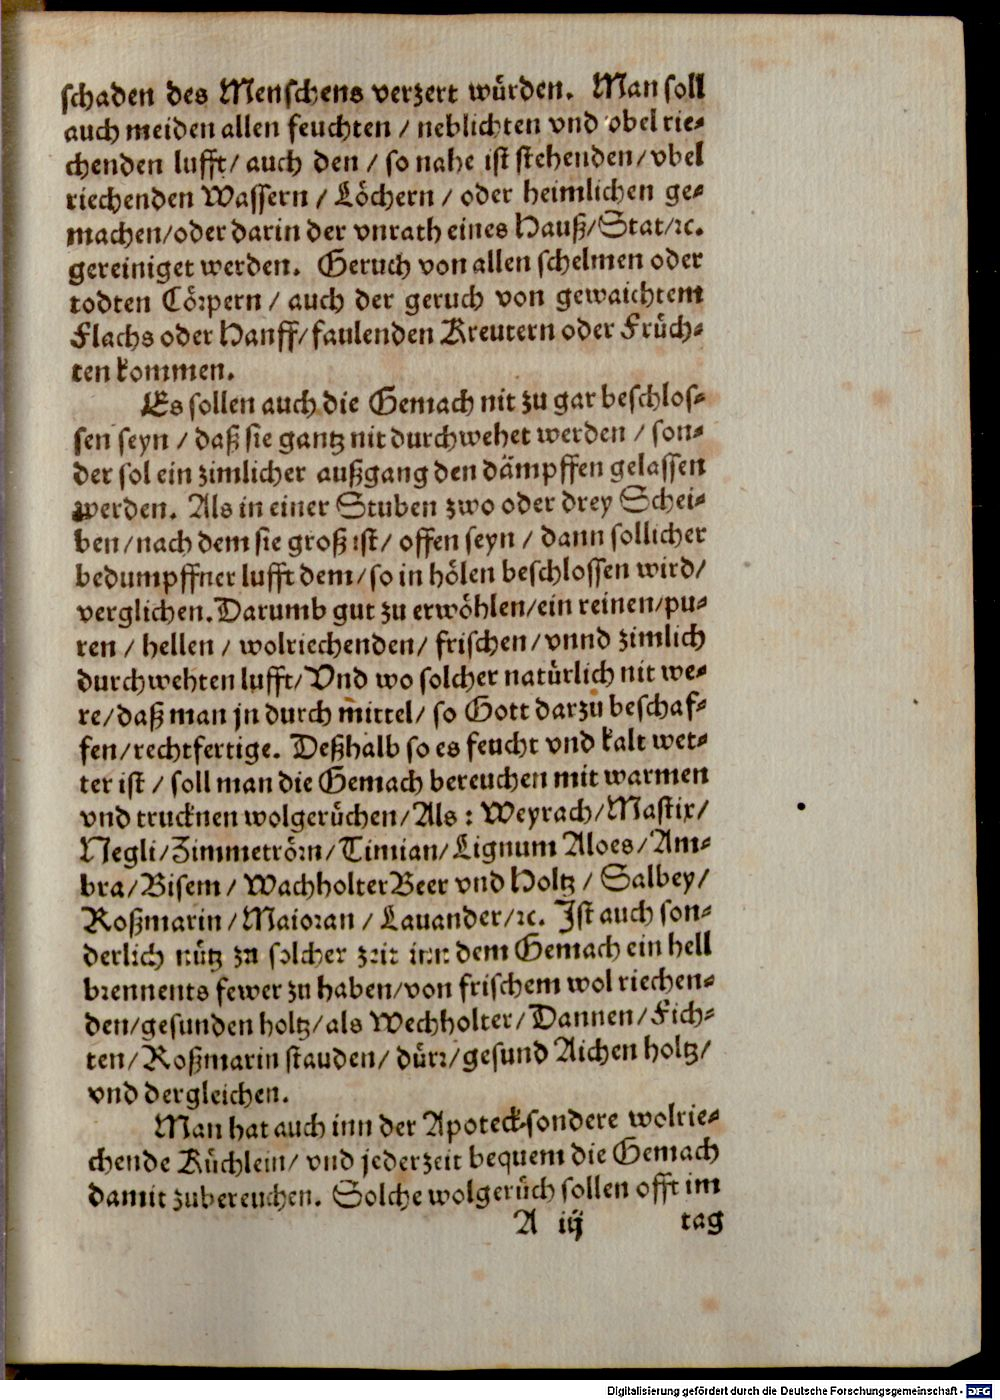 schaden des Menschens verzert würden. Man soll
auch meiden allen feuchten / neblichten vnd obel rie⸗
chenden lufft/ auch den / so nahe ist stehenden/ vbel
riechenden Wassern / Löchern / oder heimlichen ge⸗
machen/oder darin der vnrath eines Hauß/Stat/ꝛc.
gereiniget werden. Geruch von allen schelmen oder
todten Cörpern / auch der geruch von gewaichtem
Flachs oder Hanff/ faulenden Kreutern oder Früch⸗
ten kommen.
Es sollen auch die Gemach nit zu gar beschlos⸗
sen seyn / daß sie gantz nit durchwehet werden / son⸗
der sol ein zimlicher außgang den dämpffen gelassen
werden. Als in einer Stuben zwo oder drey Schei⸗
ben/nach dem sie groß ist/ offen seyn / dann sollicher
bedumpffner lufft dem/ so in hölen beschlossen wird/
verglichen. Darumb gut zu erwöhlen/ein reinen/pu⸗
ren / hellen / wolriechenden/ frischen/vnnd zimlich
durchwehten lufft/ Vnd wo solcher natürlich nit we⸗
re/daß man jn durch mittel/ so Gott darzu beschaf⸗
fen/rechtfertige. Deßhalb so es feucht vnd kalt wet⸗
ter ist / soll man die Gemach bereuchen mit warmen
vnd trucknen wolgerüchen/ Als : Weyrach/Mastix/
Negli/Zimmetrörn/Timian/Lignum Aloes/Am⸗
bra/Bisem/ WachholterBeer vnd Holtz / Salbey/
Roßmarin/Maioran / Lauander/ꝛc. Ist auch son⸗
derlich nütz zu solcher zeit inn dem Gemach ein hell
brennents fewer zu haben/von frischem wol riechen⸗
den/gesunden holtz/als Wechholter/Dannen/Fich⸗
ten/ Roßmarin stauden/ dürr/gesund Aichen holtz/
vnd dergleichen.
Man hat auch inn der Apoteck sondere wolrie⸗
chende Küchlein/ vnd jederzeit bequem die Gemach
damit zubereuchen. Solche wolgerüch sollen offt im
A iij tag
Digitalisierung gefördert durch die Deutsche Forschungsgemeinschaft - DFG